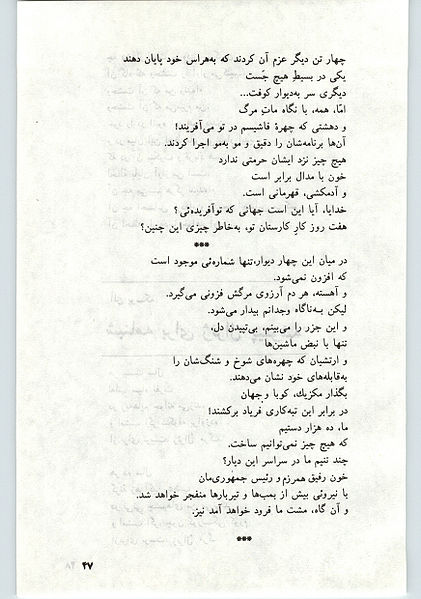 چهار تن دیگر عزم آن کردند که به‌هراس خود پایان دهند
یکی در بسیطِ هیچ جَست
دیگری سر به‌دیوار کوفت...
امّا، همه، با نگاه ماتِ مرگ
و دهشتی که چهرهٔ فاشیسم در تو می‌آفریند!
آن‌ها برنامه‌شان را دقیق و مو به‌مو اجرا کردند.
هیچ چیز نزد ایشان حرمتی ندارد
خون با مدال برابر است
و آدمکشی، قهرمانی است.
خدایا، آیا این است جهانی که تو‌آفریده‌ئی؟
هفت روز کارِ کارستان تو، به‌خاطر چیزی این چنین؟
***
در میان این چهار دیوار،تنها شماره‌ئی موجود است
که افزون نمی‌شود.
و آهسته، هر دم آرزوی مرگش فزونی می‌گیرد.
لیکن بـه‌ناگاه وجدانم بیدار می‌شود.
و این جزر را می‌بینم، بی‌تپیدن دل،
تنها با نبض ماشین‌ها
و ارتشیان که چهره‌های شوخ و شنگ‌شان را
به‌قابله‌های خود نشان می‌دهند.
بگذار مکزیك، کوبا و جهان
در برابر این تبه‌کاری فریاد برکشند!
ما، ده هزار دستیم
که هیچ چیز نمی‌توانیم ساخت.
چند تنیم ما در سراسر این دیار؟
خون رفیق همرزم و رئیس جمهوری‌مان
با نیروئی بیش از بمب‌ها و تیربارها منفجر خواهد شد.
و آن گاه، مشت ما فرود خواهد آمد نیز.
***
۴۷